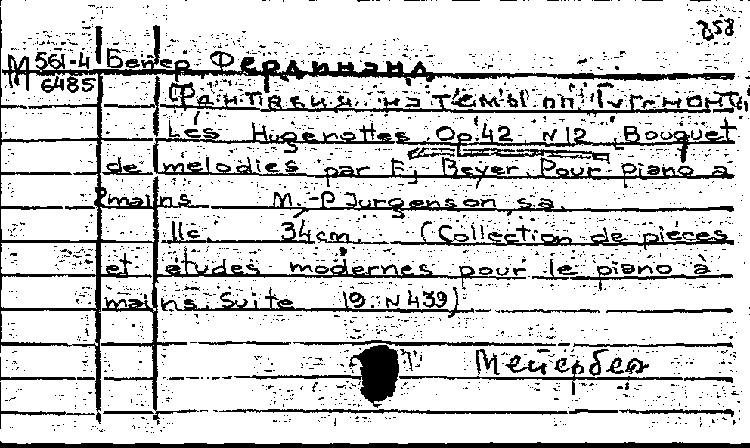 258
М 561-4 Бейер Фердинанд
6485
Фантазия на темы оп. Гугеноты
Les Hugenottes Op 42 N 12 Bouquet
de melodies par F. Beyer. Pour piano a
2 mains M.-P Jurgenson, s.a.
11c. 34cm. (Collection de pièces
et études modernes pour le piano à
mains. Suite 19. N 439)
Мейербер